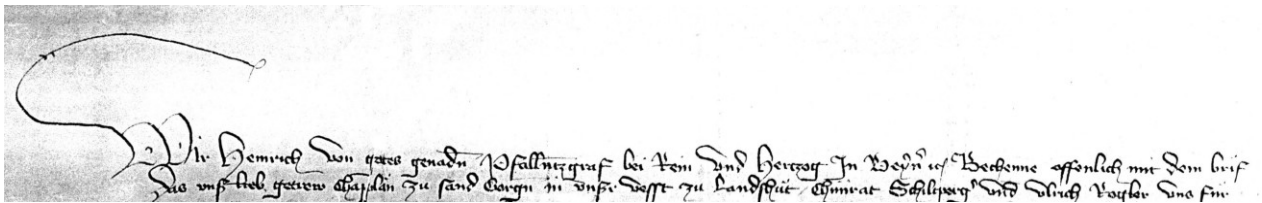 Wir Heinrich von gotes genadn Pfallntzgraf bei Rein vnd Hertzog In Beyrn etc Bechenne offenlich mit dem brif
das vnser lieb getrew Chapplän zu sand Gorgn in vnsr vesst zu Landshut Chunrat Schiltperger vnd vlrich Kogler vns für